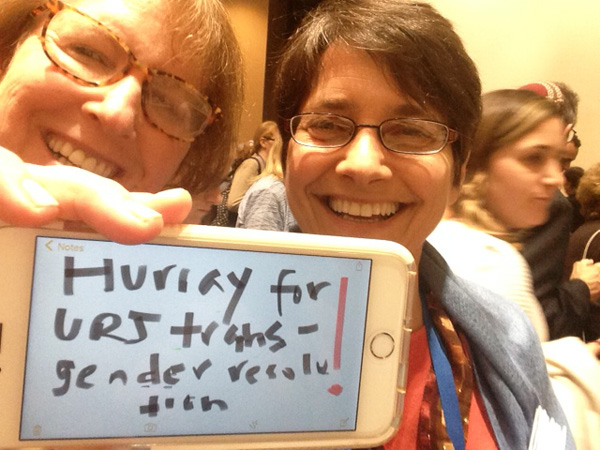 Notes
Hurray for
URJ trans-
gender resolu
tion
!